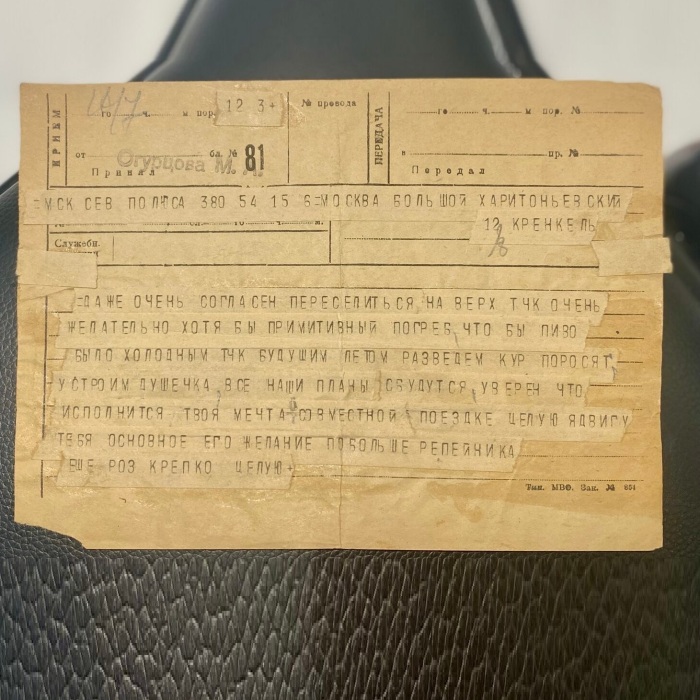 го ч. м пор. 12 3+ № провода го ч. м пор. №
ПРИЕМ
ПЕРЕДАЧА
от бл. № 81 в пр. №
Огурцова М. А.
Принял Передал
=МСК СЕВ ПОЛЮСА 380 54 15 6=МОСКВА БОЛЬШОЙ ХАРИТОНЬЕВСКИЙ
12 КРЕНКЕЛЬ
Служебн.
=ДАЖЕ ОЧЕНЬ СОГЛАСЕН ПЕРЕСЕЛИТЬСЯ НА ВЕРХ ТЧК ОЧЕНЬ
ЖЕЛАТЕЛЬНО ХОТЯ БЫ ПРИМИТИВНЫЙ ПОГРЕБ, ЧТО БЫ ПИВО
БЫЛО ХОЛОДНЫМ ТЧК БУДУШИМ ЛЕТОМ РАЗВЕДЕМ КУР ПОРОСЯТ,
УСТРОИМ ДУШЕЧКА, ВСЕ НАШИ ПЛАНЫ СБУДУТСЯ, УВЕРЕН ЧТО
ИСПОЛНИТСЯ ТВОЯ МЕЧТА О СОВМЕСТНОЙ ПОЕЗДКЕ ЦЕЛУЮ ЯДВИГУ
ТЕБЯ ОСНОВНОЕ ЕГО ЖЕЛАНИЕ ПОБОЛЬШЕ РЕПЕЙНИКА
ЕШЕ РОЗ КРЕПКО ЦЕЛУЮ+
Тип. МВО. Зак. № 854